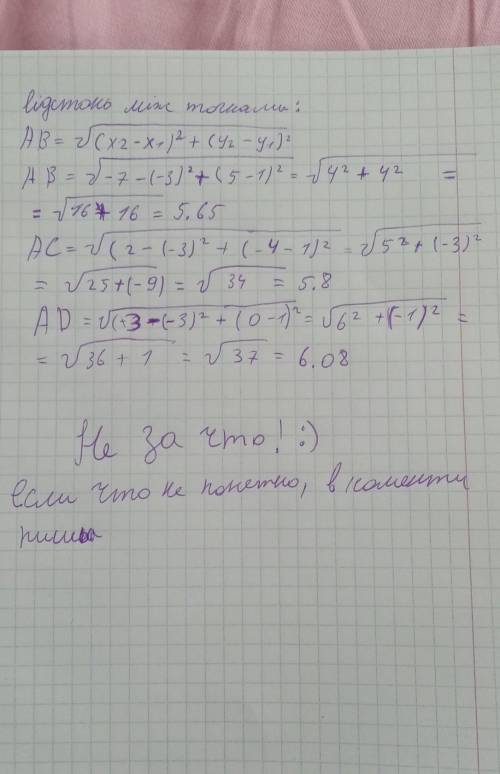 відстань між точками:
AB = √(x2 - x₁)² + (y₂ - y₁)²
AB = √-7 - (-3)² + (5 - 1)² = √4² + 4² =
= √16 + 16 = 5.65
AC = √(2 - (-3)² + (-4 - 1)² = √5² + (-3)²
= √25 + (-9) = √34 = 5.8
AD = √(3 - (-3)² + (0 - 1)² = √6² + (-1)² =
= √36 + 1 = √37 = 6.08
Не за что! :)
если что не понетно, в коменти
пиши